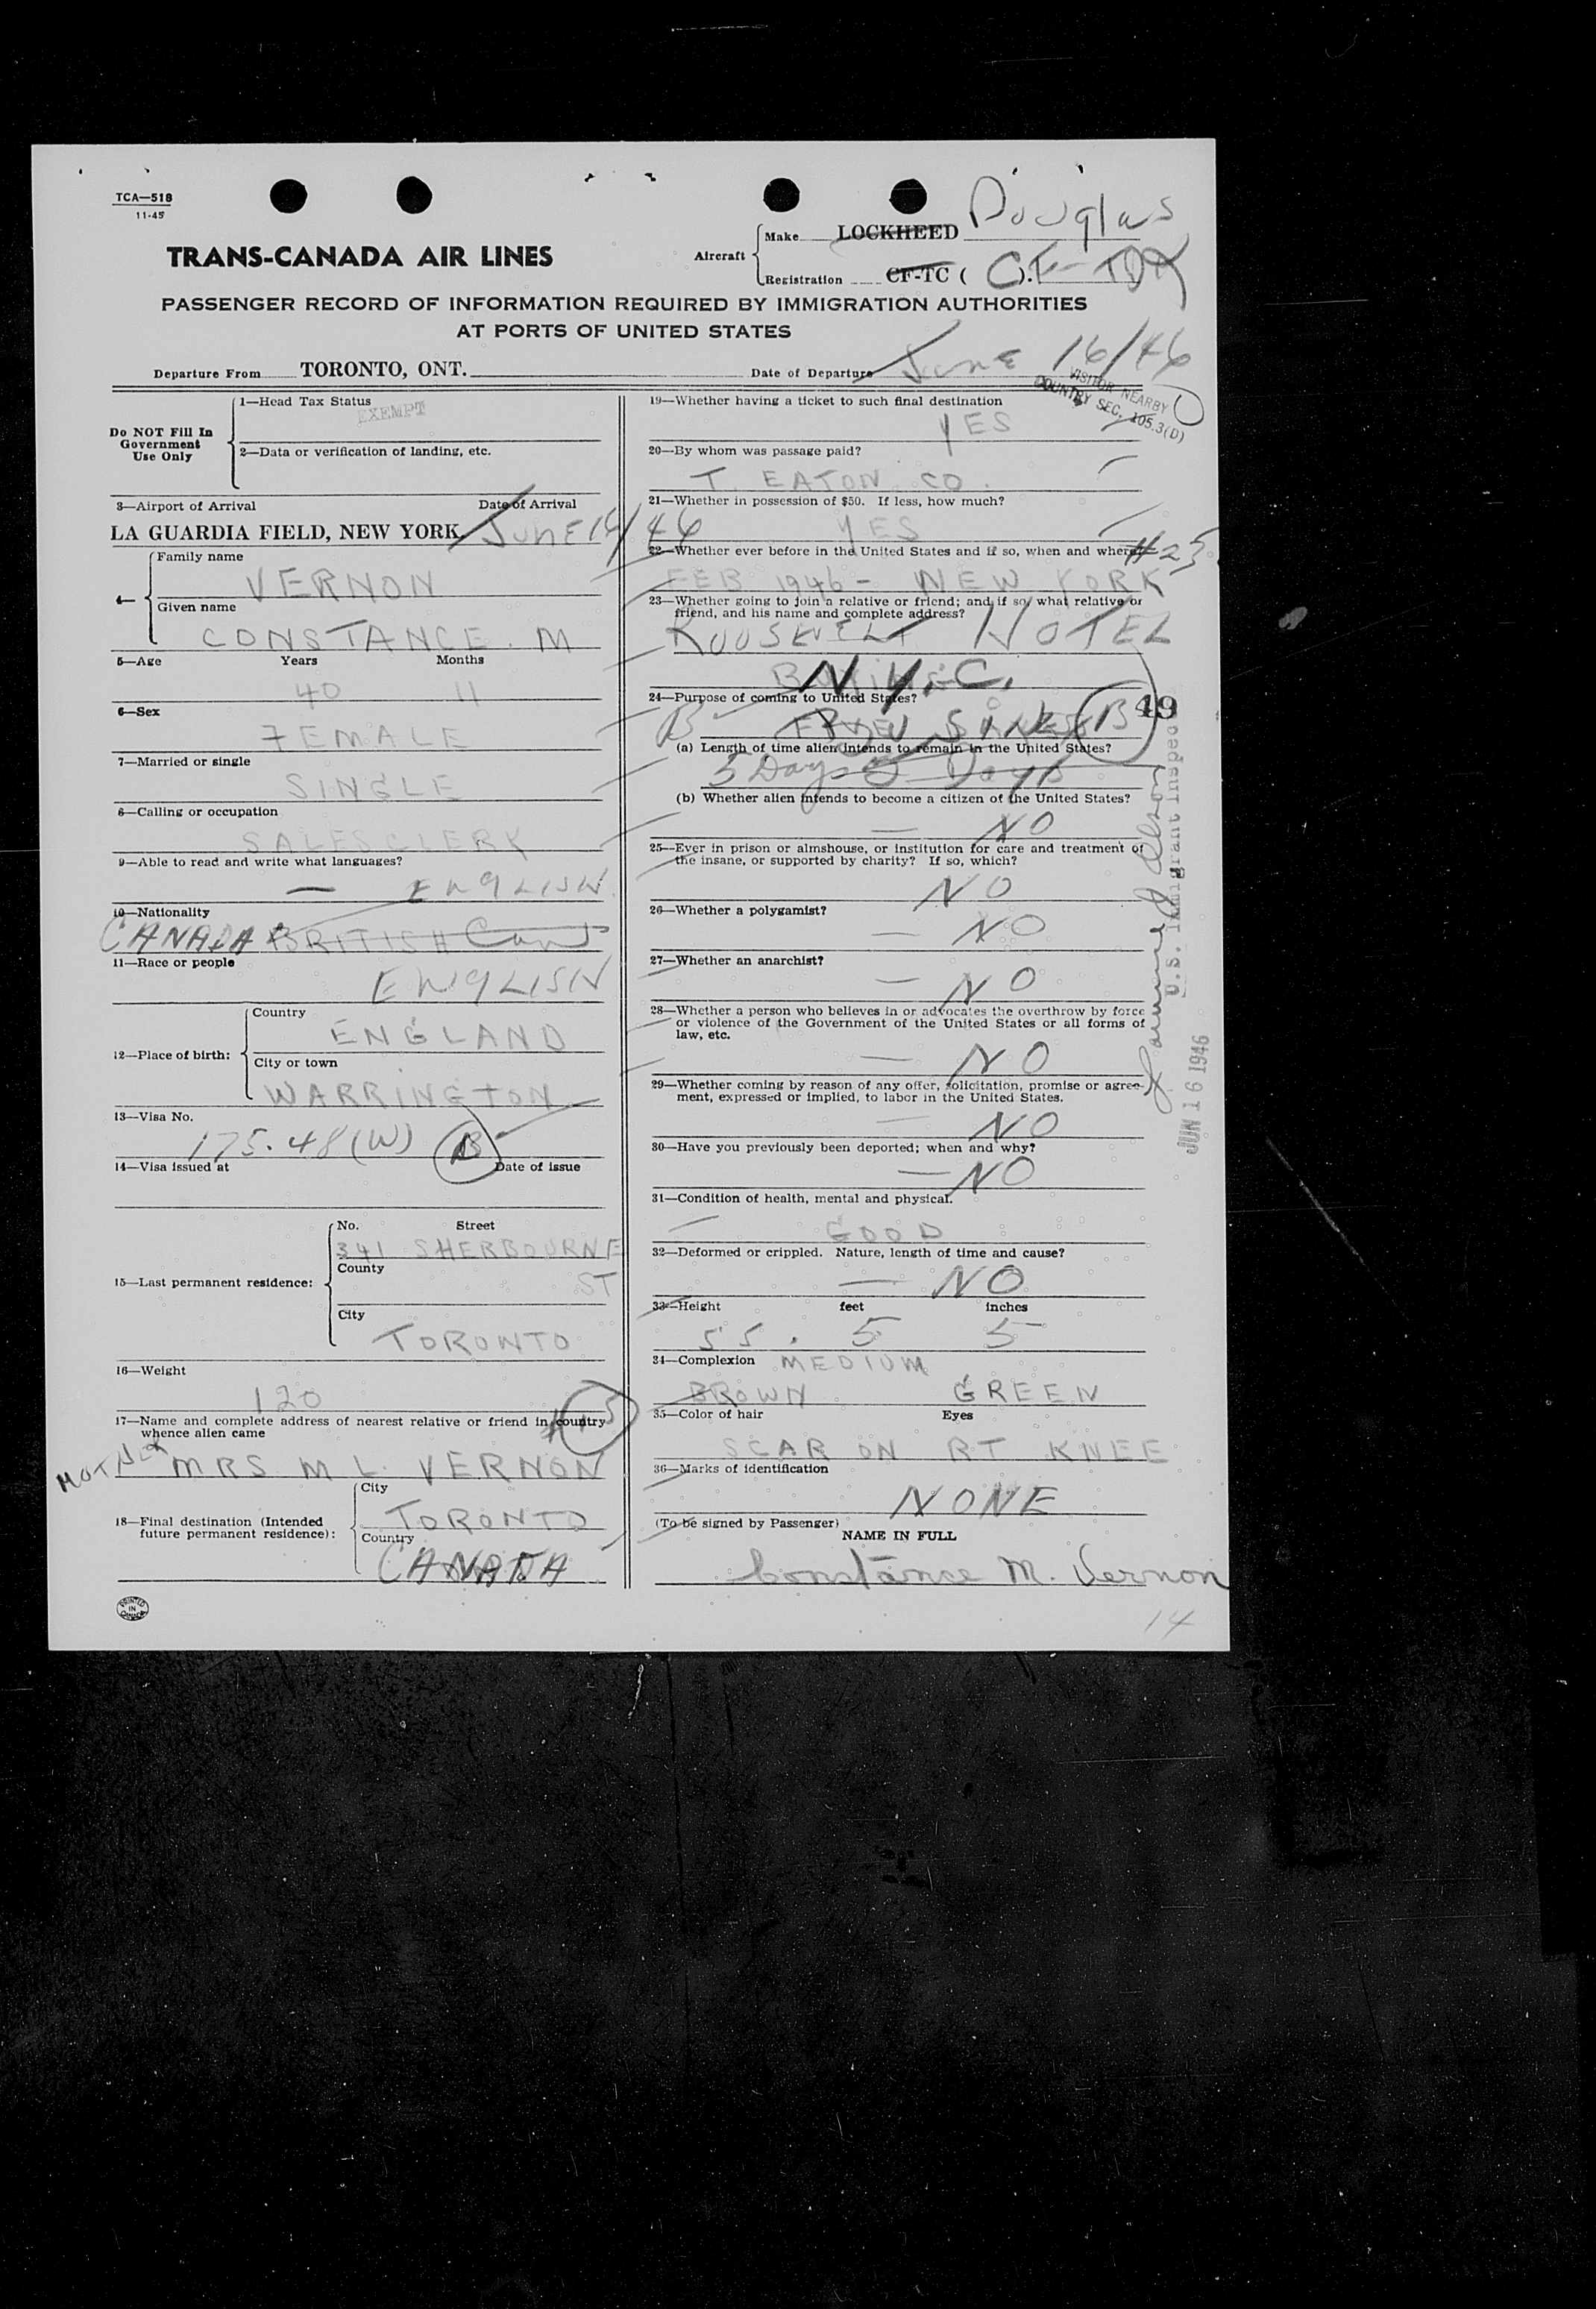 TCA—518
11-45
TRANS-CANADA AIR LINES
Aircraft
Make LOCKHEED Douglas
Registration CF-TC ( ).
PASSENGER RECORD OF INFORMATION REQUIRED BY IMMIGRATION AUTHORITIES
AT PORTS OF UNITED STATES
Departure From TORONTO, ONT.
Date of Departure June 16/46
VISITOR NEARBY
COUNTRY SEC. 105.3(D)
Do NOT Fill In
Government
Use Only
1—Head Tax Status
EXEMPT
2—Data or verification of landing, etc.
3—Airport of Arrival Date of Arrival
LA GUARDIA FIELD, NEW YORK JUNE 16/46
4—
Family name
VERNON
Given name
CONSTANCE. M
5—Age Years Months
40 11
6—Sex
FEMALE
7—Married or single
SINGLE
8—Calling or occupation
SALES CLERK
9—Able to read and write what languages?
— ENGLISH
10—Nationality
CANADA BRITISH
11—Race or people
ENGLISH
12—Place of birth:
Country
ENGLAND
City or town
WARRINGTON
13—Visa No.
175.48 (W) B
14—Visa issued at Date of issue
15—Last permanent residence:
No. Street
341 SHERBOURNE
County
ST
City
TORONTO
16—Weight
120
17—Name and complete address of nearest relative or friend in country
whence alien came
MOTHER MRS M L. VERNON
18—Final destination (Intended
future permanent residence):
City
TORONTO
Country
CANADA
PRINTED
IN
CANADA
19—Whether having a ticket to such final destination
YES
20—By whom was passage paid?
T. EATON CO.
21—Whether in possession of $50. If less, how much?
YES
22—Whether ever before in the United States and if so, when and where?
FEB 1946 - NEW YORK
23—Whether going to join a relative or friend; and if so, what relative or
friend, and his name and complete address?
ROOSEVELT HOTEL
N.Y.C.
24—Purpose of coming to United States?
B
49
(a) Length of time alien intends to remain in the United States?
5 Days 5 Days
(b) Whether alien intends to become a citizen of the United States?
— NO
25—Ever in prison or almshouse, or institution for care and treatment of
the insane, or supported by charity? If so, which?
NO
26—Whether a polygamist?
— NO
27—Whether an anarchist?
— NO
28—Whether a person who believes in or advocates the overthrow by force
or violence of the Government of the United States or all forms of
law, etc.
— NO
29—Whether coming by reason of any offer, solicitation, promise or agree-
ment, expressed or implied, to labor in the United States.
— NO
30—Have you previously been deported; when and why?
— NO
31—Condition of health, mental and physical.
GOOD
32—Deformed or crippled. Nature, length of time and cause?
— NO
33—Height feet inches
55. 5 5
34—Complexion MEDIUM
BROWN GREEN
35—Color of hair Eyes
SCAR ON RT KNEE
36—Marks of identification
NONE
(To be signed by Passenger)
NAME IN FULL
Constance M. Vernon
14
U.S. Immigrant Inspector
JUN 16 1946